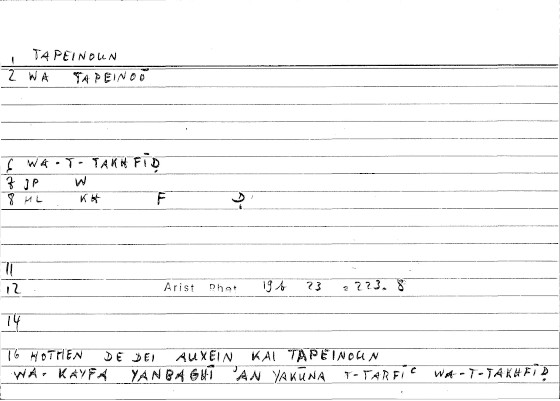 1 TAPEINOUN
2 WA TAPEINOŌ
6 WA-T-TAKHFĪḌ
7 JP W
8 HL KH F Ḍ
11
12 Arist Rhet 19b 23 = 223. 8
14
16 HOTHEN DE DEI AUXEIN KAI TAPEINOUN
WA- KAYFA YANBAGHĪ 'AN YAKŪNA T-TARFĪʿ WA-T-TAKHFĪḌ